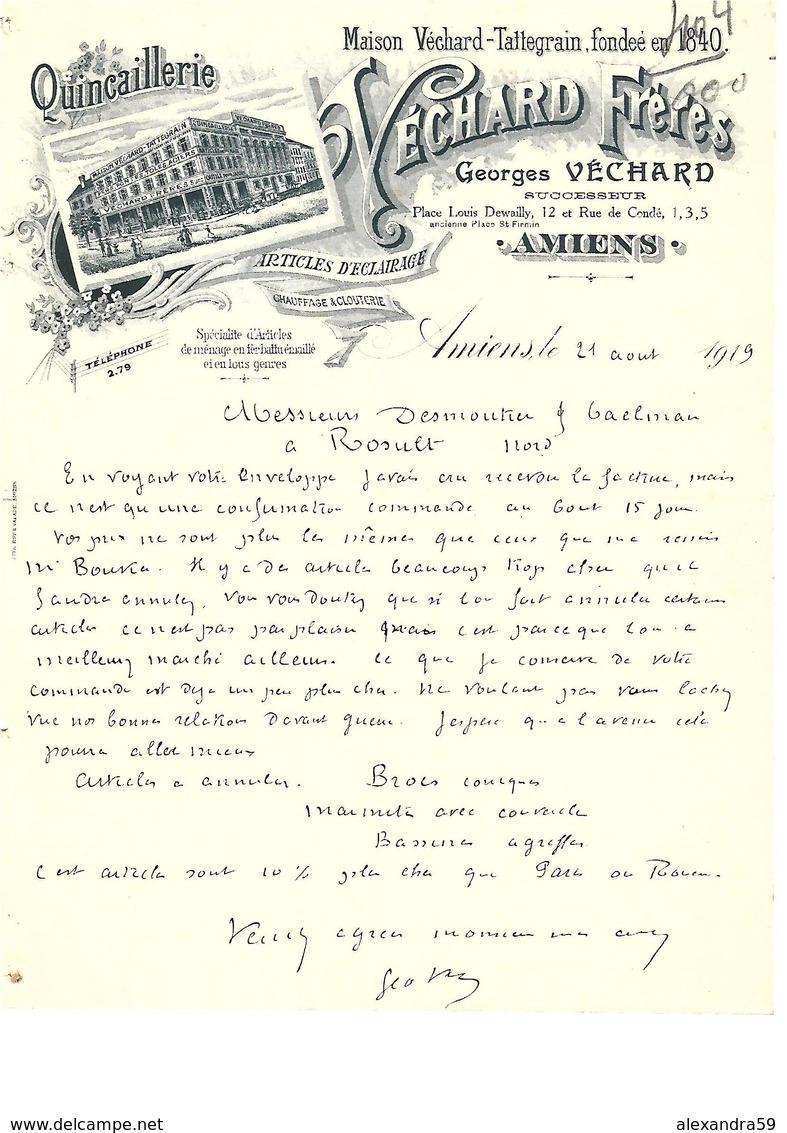 Maison Véchard-Tattegrain, fondeé en 1840.
Quincaillerie
VÉCHARD Frères
Georges VÉCHARD
SUCCESSEUR
Place Louis Dewailly, 12 et Rue de Condé, 1, 3, 5
ancienne Place St-Firmin
AMIENS
MAISON VÉCHARD-TATTEGRAIN
ARTICLES D'ECLAIRAGE
CHAUFFAGE & CLOUTERIE
Spécialité d'Articles
de ménage en fer battu émaillé
et en tous genres
TÉLÉPHONE
2.79
Amiens, le 21 aout 1919
Messieurs Desmoutier & Caelman
a Rosult Nord
En voyant votre enveloppe javais cru recevoir la facture, mais
ce nest qu une confirmation commande au bout 15 jours
Vos prix ne sont plus les mêmes que ceux que ma remis
Mr Bouvier. Il y a des articles beaucoup trop cher qu il
faudra annuler. Vous vous doutez que si lon fait annuler certains
articles ce nest pas par plaisir mais c est parce que lon a
meilleur marché ailleurs. Ce que je conserve de votre
commande est deja un peu plus cher. Ne voulant pas vous lacher
vue nos bonnes relations davant guerre. Jespere qu a l avenir cela
pourra aller mieux
articles a annuler. Brocs coniques
marmites avec couvercle
Bassines agraffes
C est articles sont 10 % plus cher que Paris ou Rouen.
Veuillez agreer monsieur mes
Geo
alexandra59